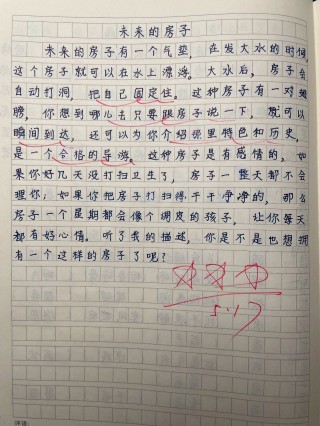 未来的房子
未来的房子有一个气垫，在发大水的时候，
这个房子就可以在水上漂浮。大水后，房子会
自动打洞，把自己固定住。这种房子有一对翅
膀，你想到哪儿去只要跟房子说一下，就可以
瞬间到达，还可以为你介绍那里特色和历史，
是一个合格的导游。这种房子是有感情的，如
果你好几天没打扫卫生了，房子一整天都不会
理你；如果你把房子打扫得干干净净的，那么
房子一个星期都会像个调皮的孩子，让你每天
都有好心情。听了我的描述，你是不是也想拥
有一个这样的房子了呢？
5.17
评语